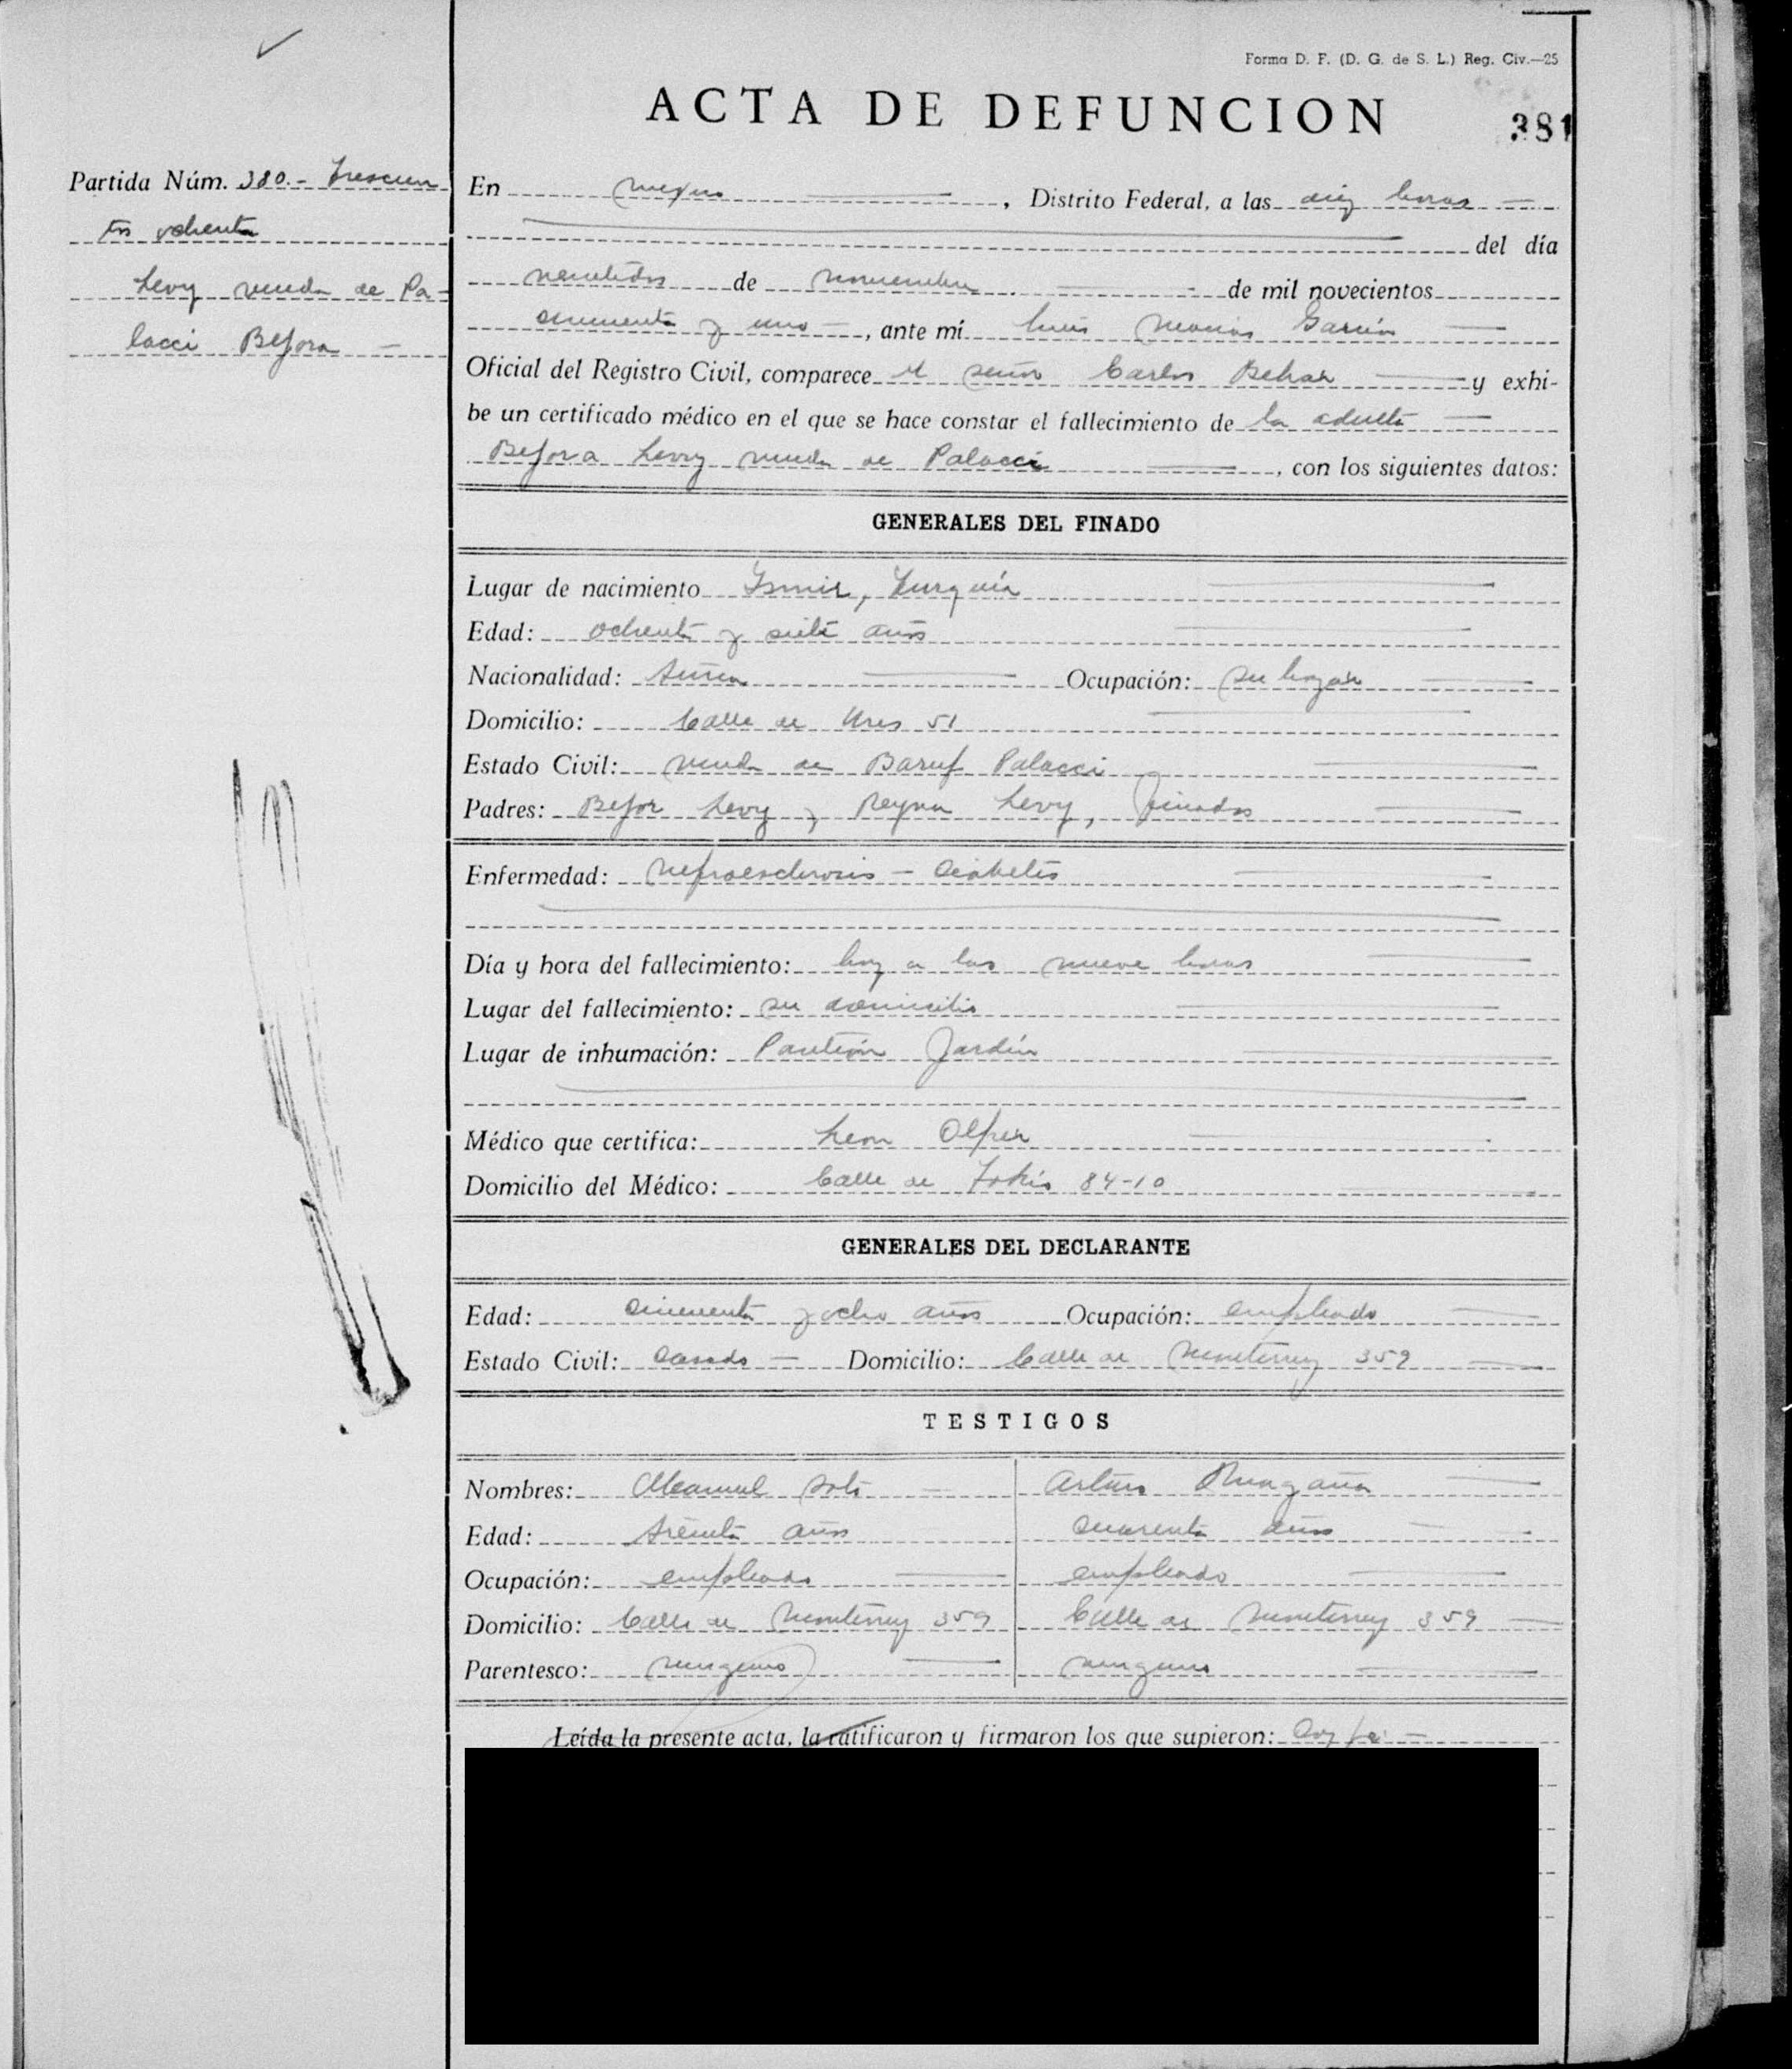 Forma D. F. (D. G. de S. L.) Reg. Civ.—25
ACTA DE DEFUNCION
381
Partida Núm. 380.- Trescien
tos ochenta
Levy viuda de Pa-
lacci Befora
En Mexico, Distrito Federal, a las diez horas
del día
veintidos de noviembre de mil novecientos
cincuenta y uno, ante mí Luis Macias Garcia
Oficial del Registro Civil, comparece el señor Carlos Behar y exhi-
be un certificado médico en el que se hace constar el fallecimiento de la adulta
Befora Levy viuda de Palacci, con los siguientes datos:
GENERALES DEL FINADO
Lugar de nacimiento Ismir, Turquía
Edad: ochenta y siete años
Nacionalidad: Ocupación: su hogar
Domicilio: Calle de Ures 51
Estado Civil: viuda de Baruf Palacci
Padres: Befor Levy y Reyna Levy, finados
Enfermedad: Nefroesclerosis - Diabetes
Día y hora del fallecimiento: hoy a las nueve horas
Lugar del fallecimiento: su domicilio
Lugar de inhumación: Panteón Jardín
Médico que certifica: Leon
Domicilio del Médico: Calle de Tokio 84-10
GENERALES DEL DECLARANTE
Edad: cincuenta y ocho años Ocupación: empleado
Estado Civil: casado Domicilio: Calle de Monterrey 359
TESTIGOS
Nombres: Manuel Soto Arturo Magaña
Edad: treinta años cuarenta años
Ocupación: empleado empleado
Domicilio: Calle de Monterrey 359 Calle de Monterrey 359
Parentesco: ninguno ninguno
Leída la presente acta, la ratificaron y firmaron los que supieron: Doy fe